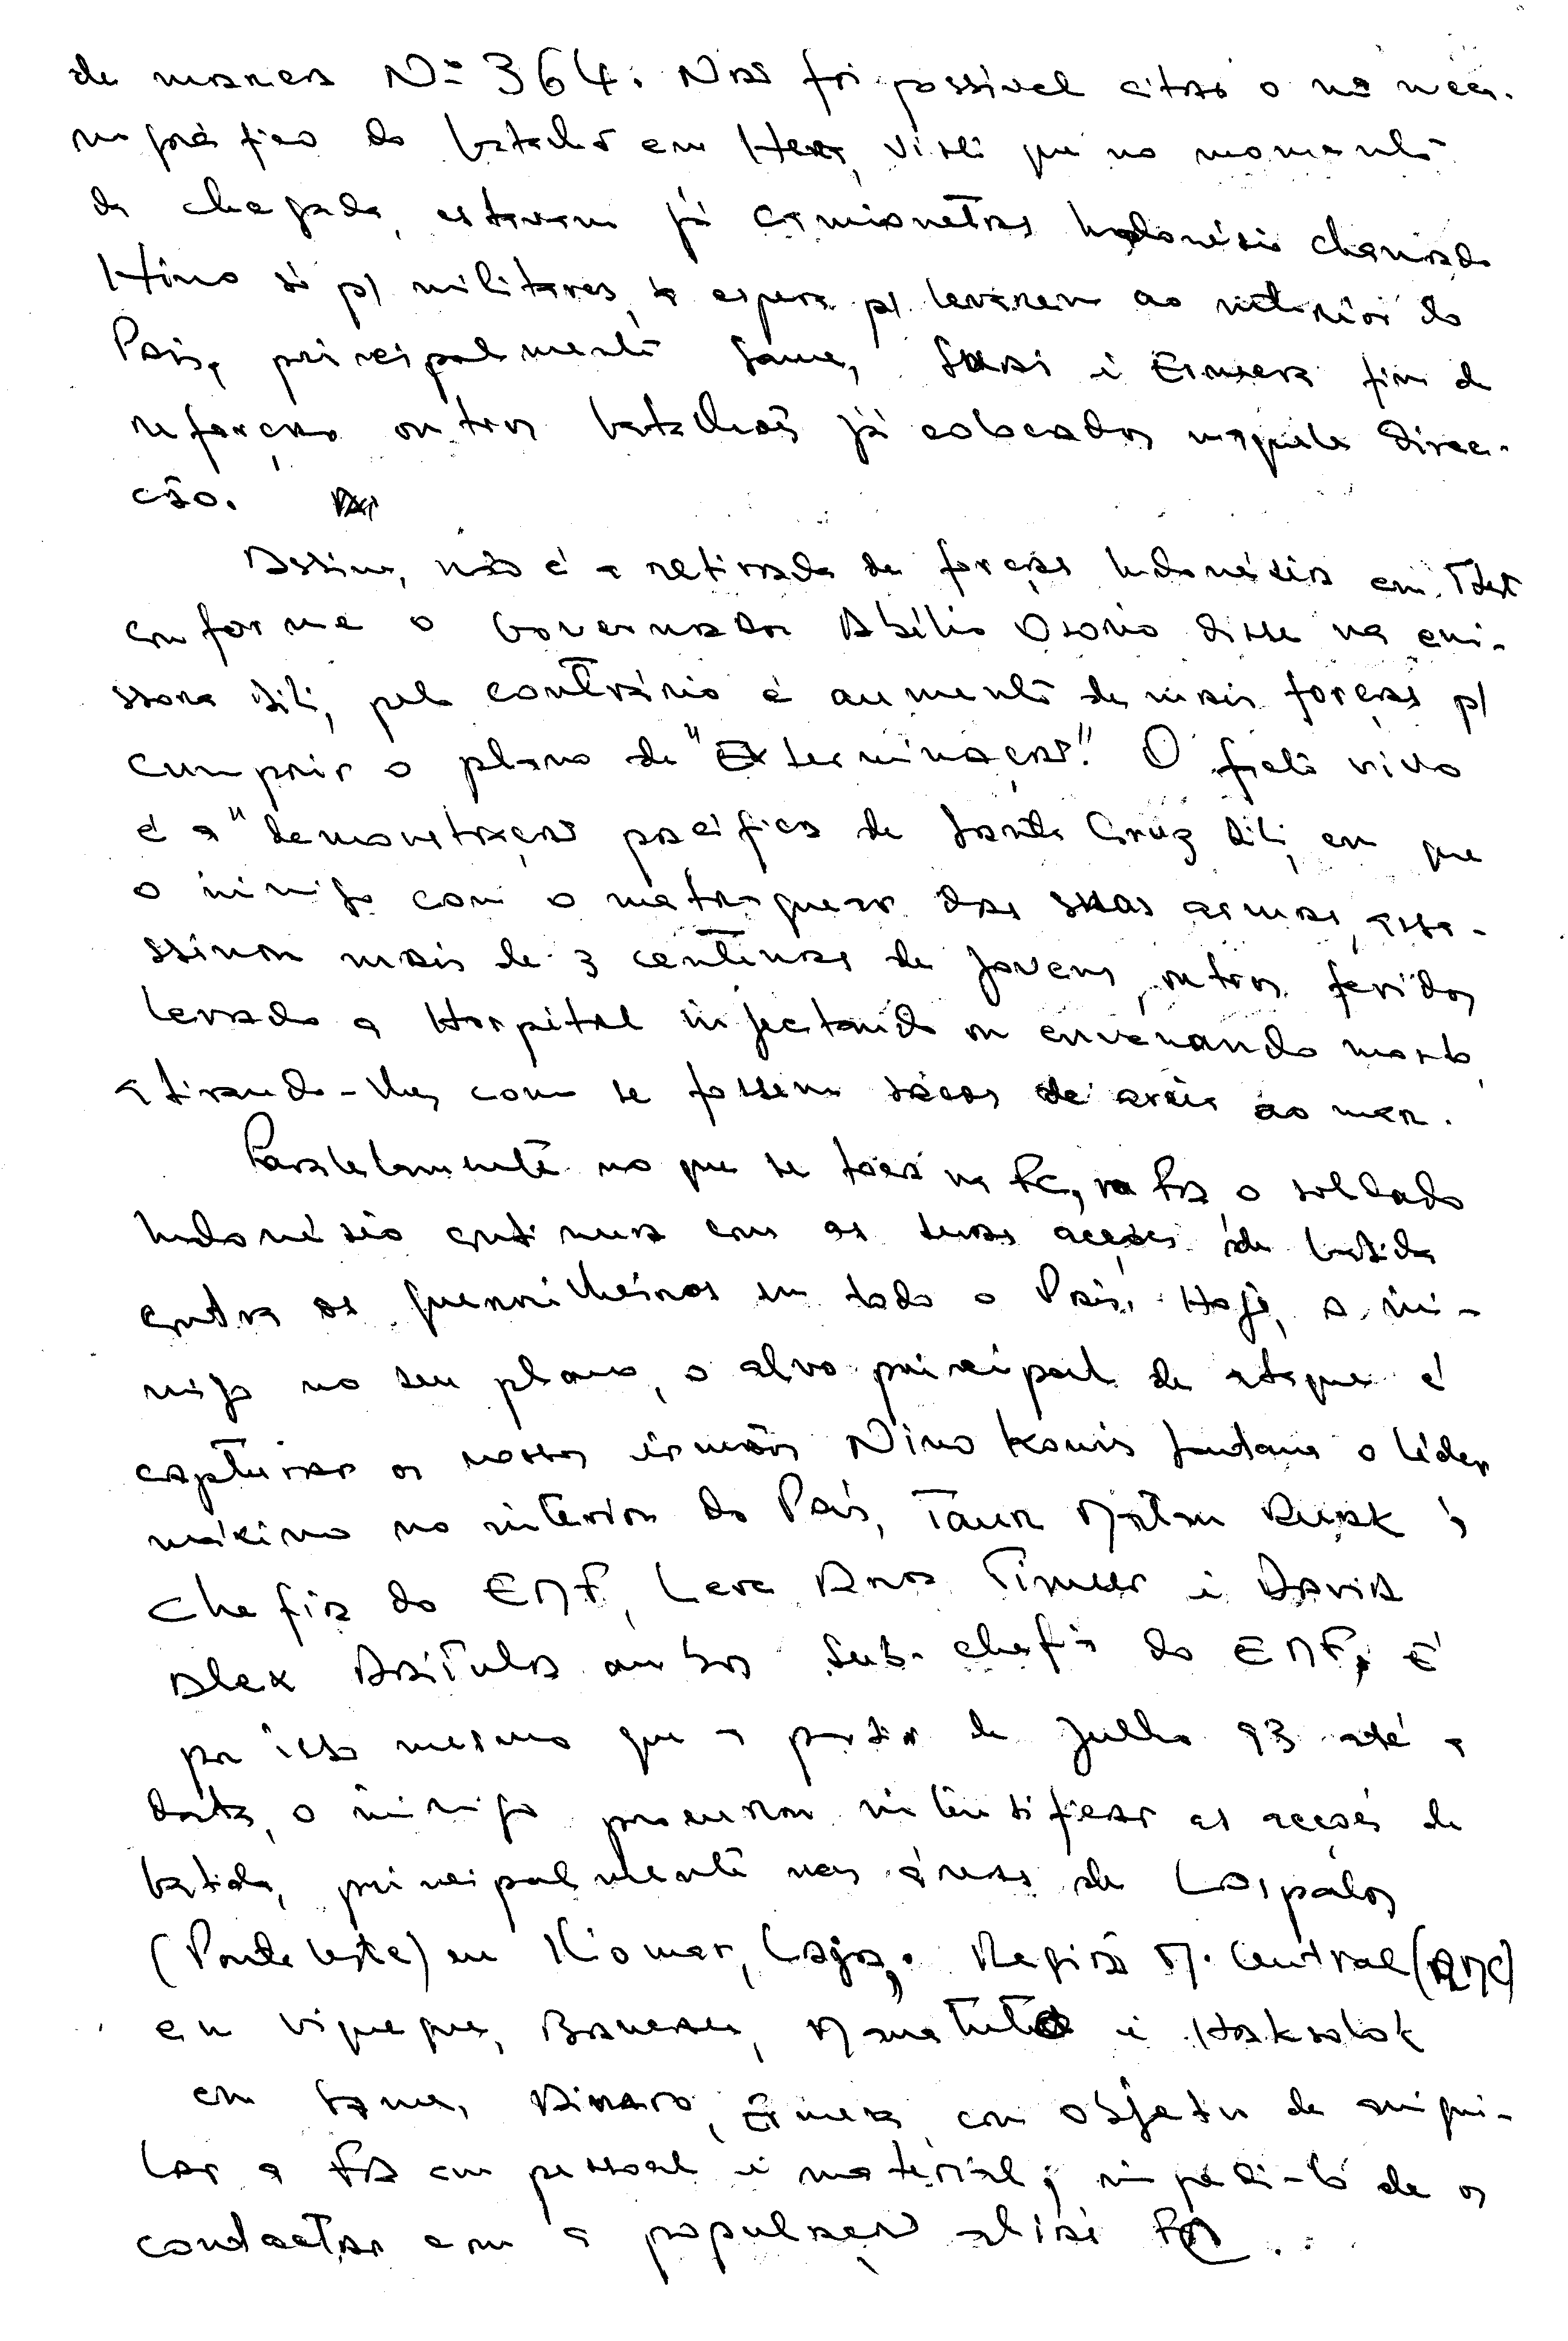 de maneira Nº 364. Não foi possível citar o nº meca-
nográfico do batalhão em Hera, visto que no momento
da chegada, estavam já camionetas Indonésia chamado
Hino só p/ militares, à espera p/ levarem ao interior do
País, principalmente Same, Suai i Ermera fim de
reforçar outros batalhões já colocados naquela direc-
ção.
Assim, não é a retirada de forças Indonésia em
conforme o Governador Abílio Osório disse na emi-
ssora Dili, pelo contrário é aumento de mais forças p/
cumprir o plano de "Exterminação". O vivo
é a "demonstração pacífica de Santa Cruz Dili, em que
o inimigo com o matraquear das suas armas, assa-
ssinou mais de 3 centenas de jovens, outros feridos
levado a Hospital injectando ou envenando morto,
atirando-lhes como se fossem sacos de areia ao mar.
Paralelamente no que se toca na FC, na FA o soldado
Indonésio continua com as suas acções de batida
contra os guerrilheiros em todo o País. Hoje, o ini-
migo no seu plano, o alvo principal de ataque é
capturar os nossos irmãos Nino Konis Santana o líder
máximo no interior do País, Taur Matan Ruak à
Chefia do EMF, Lere Anan Timur i David
Alex Daitula ambos Sub-chefia do EMF, É
por isso mesmo que a partir de Julho 93 até a
data, o inimigo procurou intensificar as acções de
batida, principalmente nas áreas de Lospalos
(Ponta leste) em Iliomar, Laga,. Região M. Central (RMC)
em Viqueque, Baucau, Manatuto i Haksolok
em Same, Ainaro, Ermera, com objetivo de aniqui-
lar a FA em pessoal i material, impedi-lo de os
contactar com a população aliás FA...